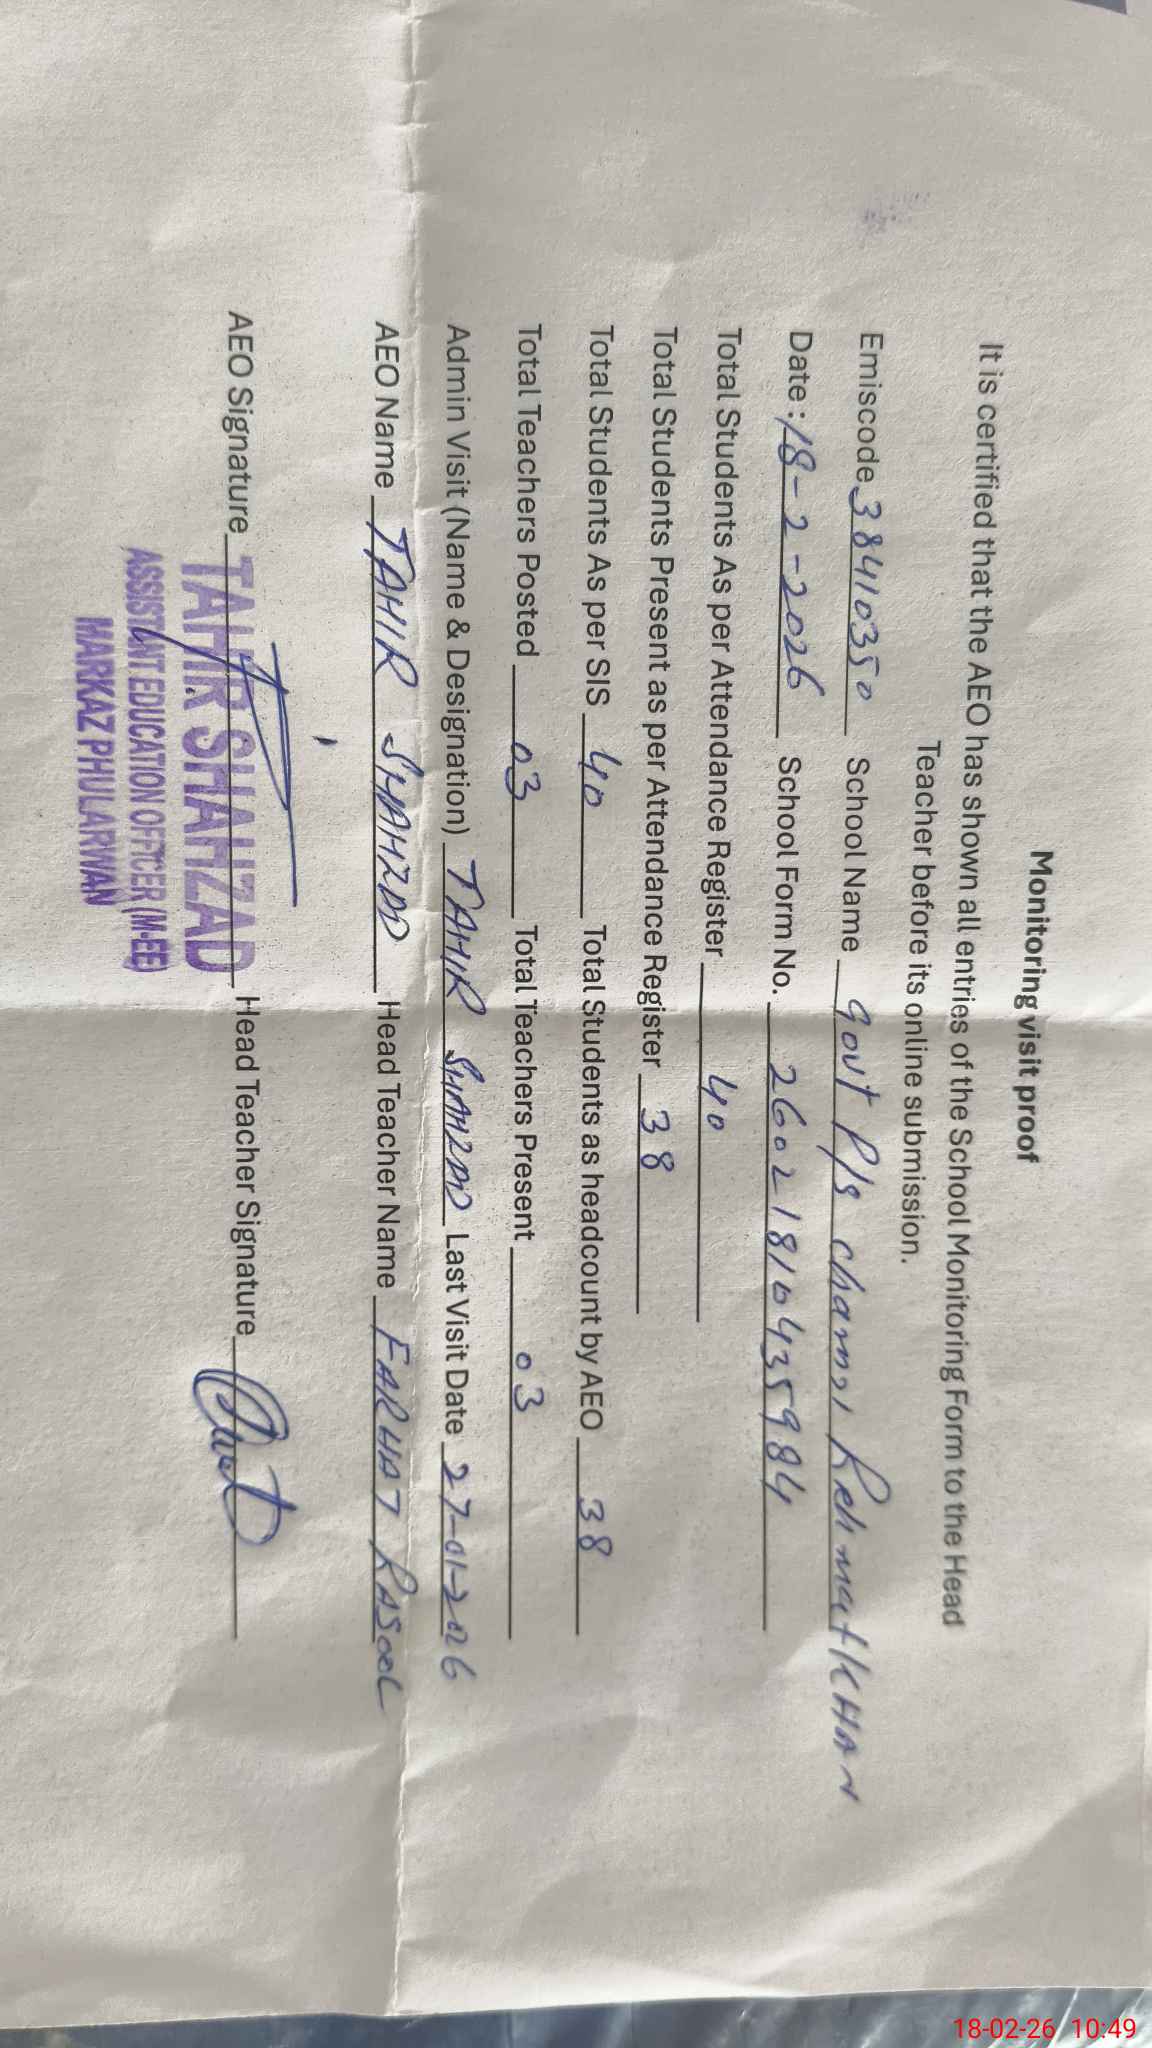 Monitoring visit proof
It is certified that the AEO has shown all entries of the School Monitoring Form to the Head
Teacher before its online submission.
Emiscode 38410350 School Name Govt P/s chamni Rehmat KHAN
Date: 18-2-2026 School Form No. 260218104359 84
Total Students As per Attendance Register 40
Total Students Present as per Attendance Register 38
Total Students As per SIS 40 Total Students as headcount by AEO 38
Total Teachers Posted 03 Total Teachers Present 03
Admin Visit (Name & Designation) TAHIR SHAHZAD Last Visit Date 27-01-2026
AEO Name TAHIR SHAHZAD Head Teacher Name FARHAT RASOOL
AEO Signature Head Teacher Signature
TAHIR SHAHZAD
ASSISTANT EDUCATION OFFICER (M-EE)
MARKAZ PHULARWAN
18-02-26 10:49